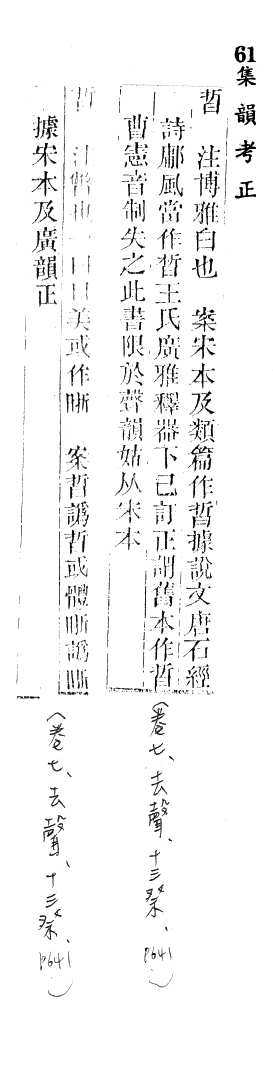 61
集韻考正
晢　注博雅白也　案宋本及類篇作晳據說文唐石經
詩鄘風當作晳王氏廣雅釋器下已訂正謂舊本作晢
曹憲音制失之此書限於聲韻姑从宋本
（卷七、去聲、十三祭、P641）
一曰目美或作晣　案哲譌哲或體晣譌晰
據宋本及廣韻正
（卷七、去聲、十三祭、P641）